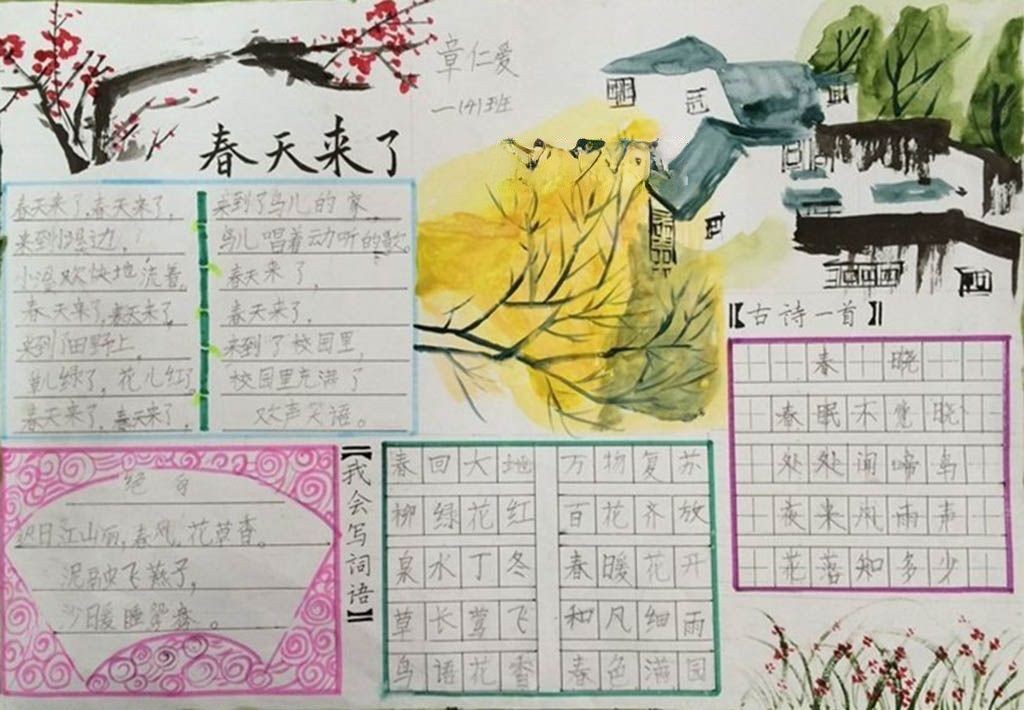 章仁爱
一(4)班
春天来了
春天来了,春天来了,
来到小溪边,
小溪欢快地流着,
春天来了,春天来了,
来到田野上,
草儿绿了,花儿红了
春天来了,春天来了,
来到了鸟儿的家,
鸟儿唱着动听的歌。
春天来了,
春天来了,
来到了校园里,
校园里充满了
欢声笑语。
【古诗一首】
春晓
春眠不觉晓
处处闻啼鸟
夜来风雨声
花落知多少
绝句
迟日江山丽,春风,花草香。
泥融飞燕子,
沙日暖睡鸳鸯。
【我会写词语】
春回大地 万物复苏
柳绿花红 百花齐放
泉水丁冬 春暖花开
草长莺飞 和风细雨
鸟语花香 春色满园